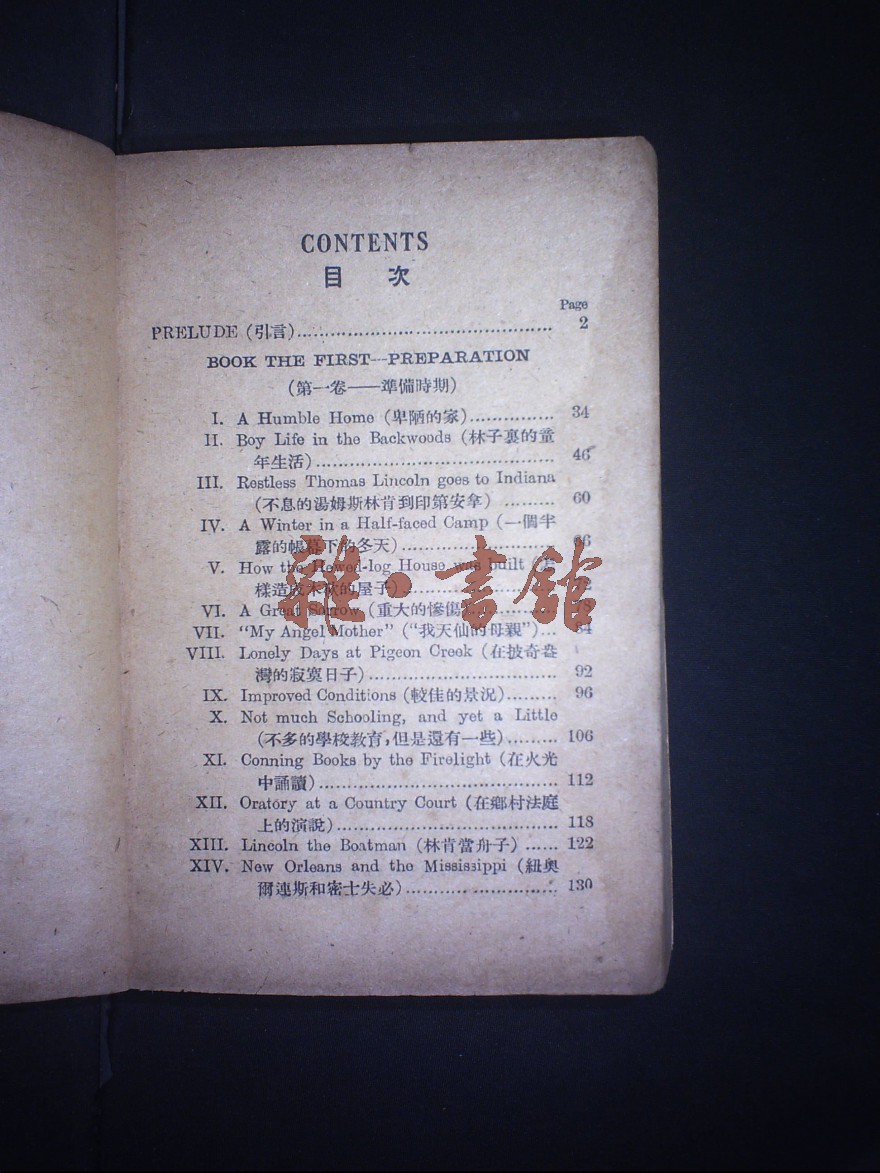 CONTENTS
目 次
Page
PRELUDE (引言) 2
BOOK THE FIRST—PREPARATION
(第一卷——準備時期)
I. A Humble Home (卑陋的家) 34
II. Boy Life in the Backwoods (林子裏的童
年生活) 46
III. Restless Thomas Lincoln goes to Indiana
(不息的湯姆斯林肯到印第安拿) 60
IV. A Winter in a Half-faced Camp (一個半
露的帳幕下的冬天) 66
V. How the Hewed-log House was built
樣造成木砍的屋子)
VI. A Great Sorrow (重大的慘傷
VII. “My Angel Mother” (“我天仙的母親”) 84
VIII. Lonely Days at Pigeon Creek (在披奇
灣的寂寞日子) 92
IX. Improved Conditions (較佳的景況) 96
X. Not much Schooling, and yet a Little
(不多的學校教育,但是還有一些) 106
XI. Conning Books by the Firelight (在火光
中誦讀) 112
XII. Oratory at a Country Court (在鄉村法庭
上的演說) 118
XIII. Lincoln the Boatman (林肯當舟子) 122
XIV. New Orleans and the Mississippi (紐奧
爾連斯和密士失必) 130
雜·書館